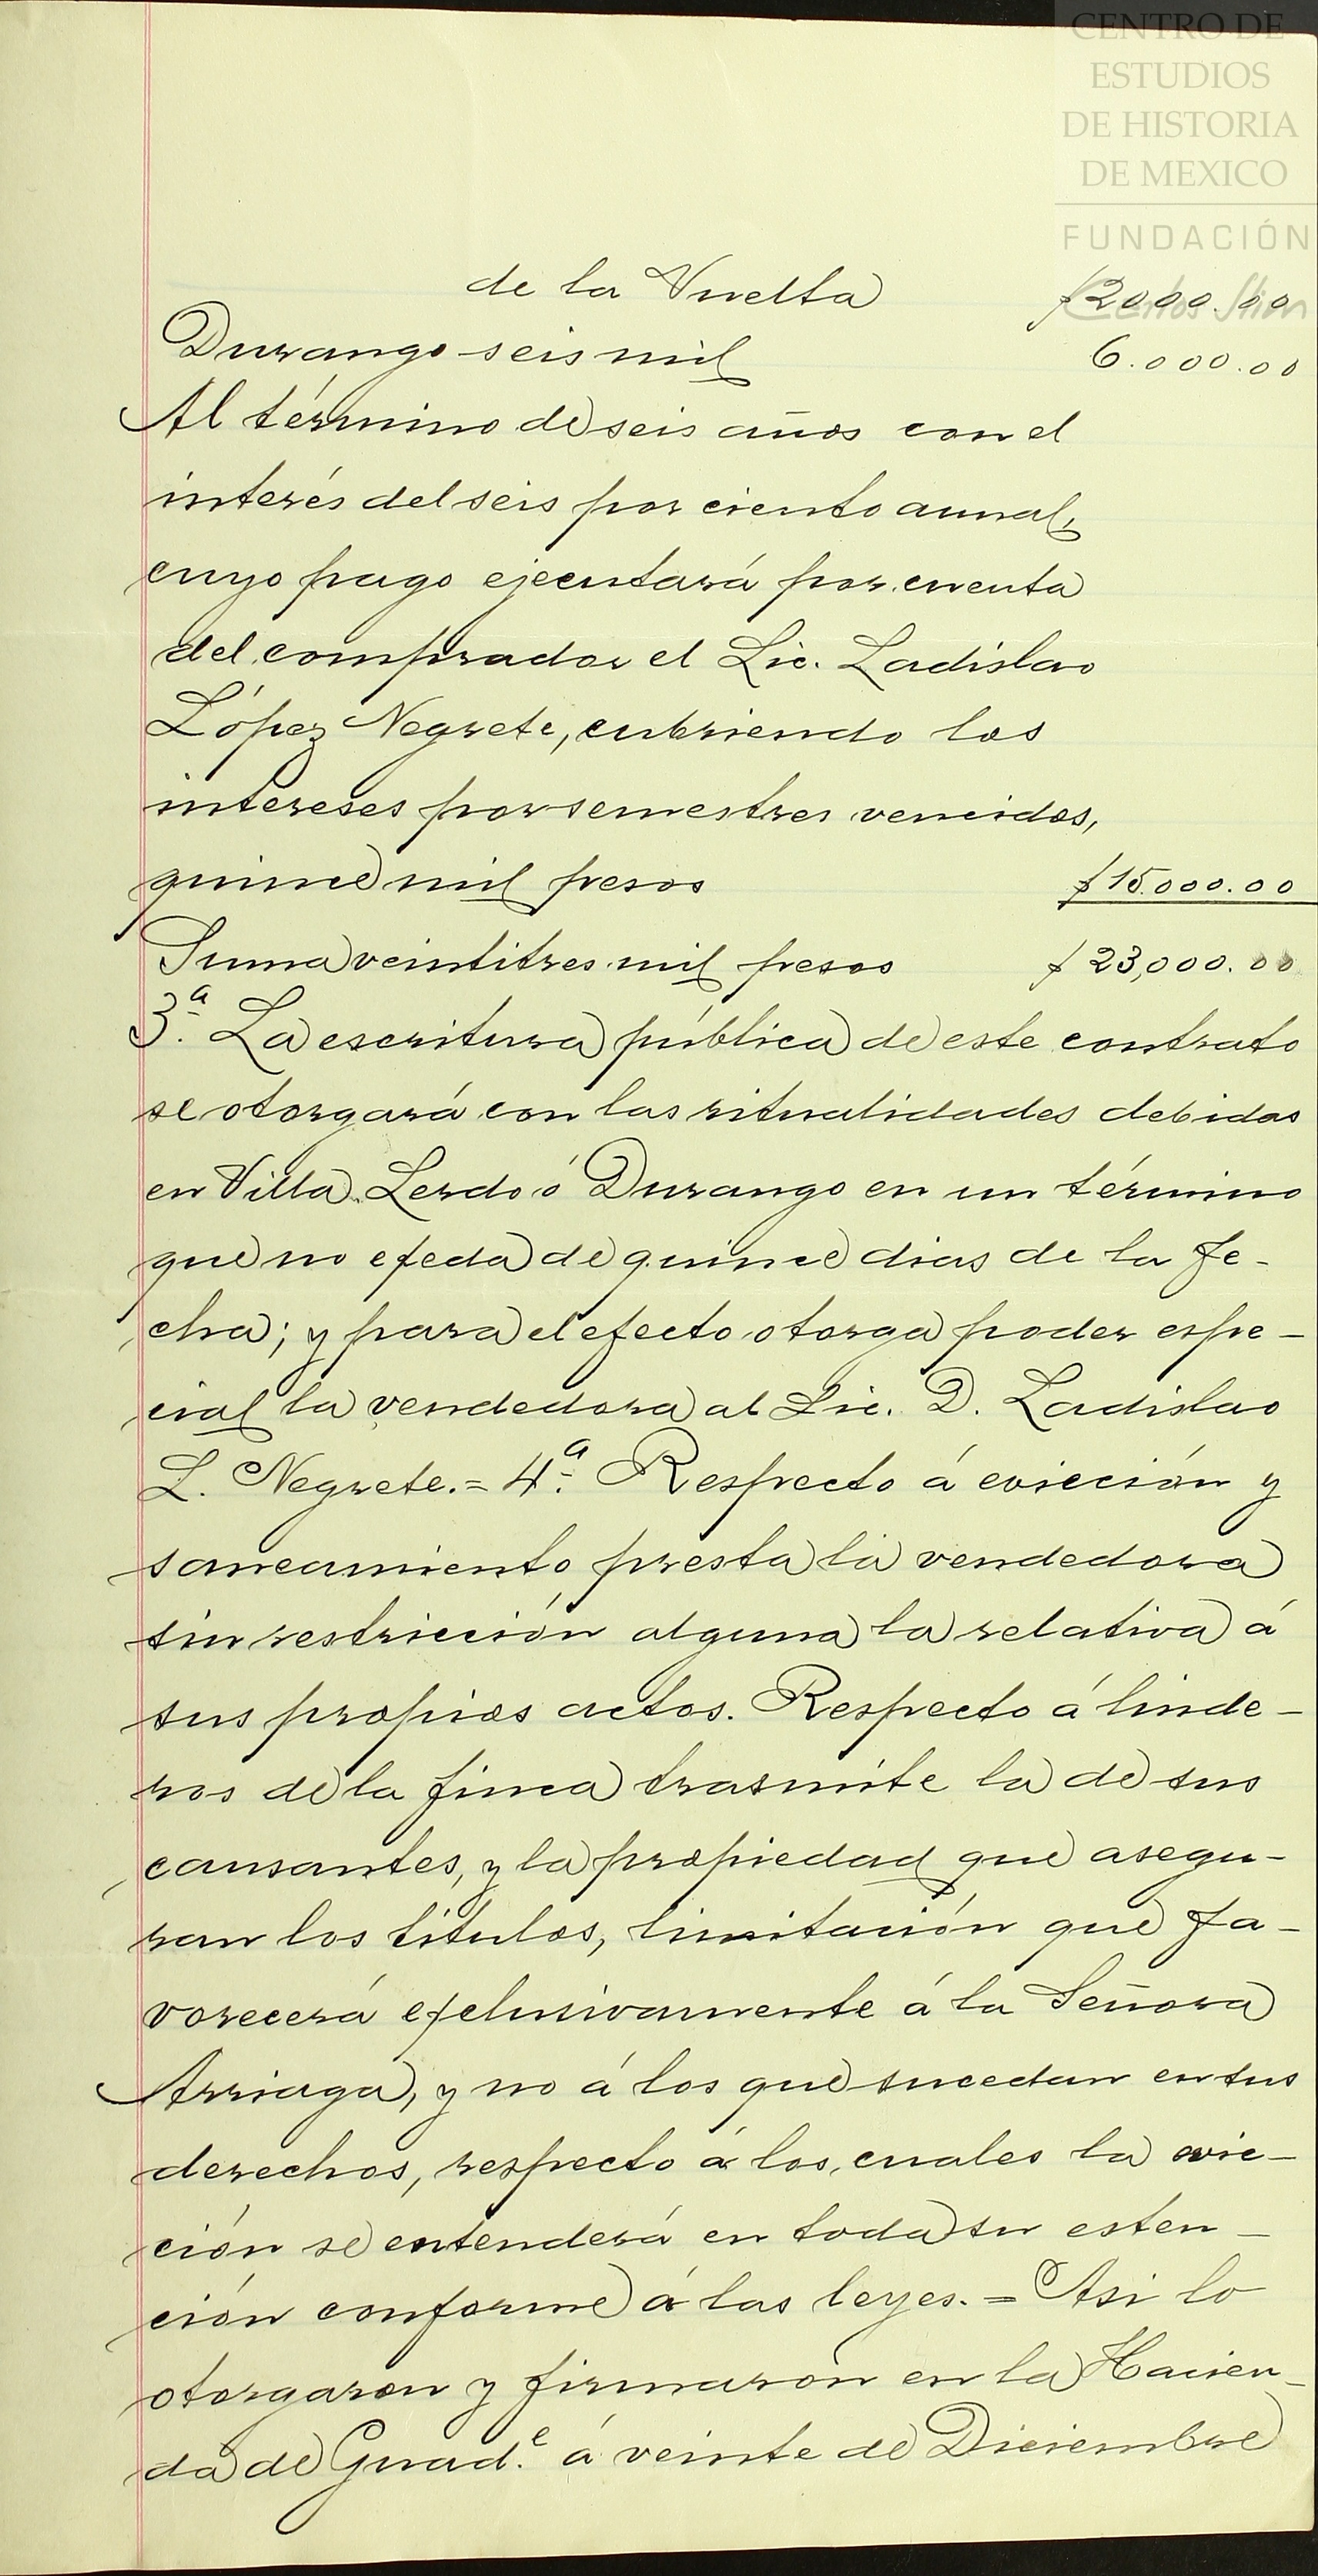 CENTRO DE
ESTUDIOS
DE HISTORIA
DE MEXICO
FUNDACIÓN
Carlos Slim
de la Vuelta $2000.00
Durango seis mil 6.000.00
Al término de seis años con el
interés del seis por ciento anual,
cuyo pago ejecutará por cuenta
del comprador el Lic. Ladislao
López Negrete, cubriendo los
intereses por semestres vencidos,
quince mil pesos $15.000.00
Suma veintitres mil pesos $23,000.00
3.ª La escritura pública de este contrato
se otorgará con las ritualidades debidas
en Villa Lerdo ó Durango en un término
que no exeda de quince dias de la fe-
cha; y para el efecto otorga poder espe-
cial la vendedora al Lic. D. Ladislao
L. Negrete.= 4.ª Respecto á evicción y
saneamiento presta la vendedora
sin restricción alguna la relativa á
sus propios actos. Respecto á linde-
ros de la finca trasmite la de sus
causantes, y la propiedad que asegu-
ran los titulos, limitación que fa-
vorecerá exclusivamente á la Señora
Arriaga, y no á los que sucedan en sus
derechos, respecto á los cuales la evic-
ción se entenderá en toda su esten-
ción conforme á las leyes.= Asi lo
otorgaron y firmaron en la Hacien-
da de Guad.e á veinte de Diciembre